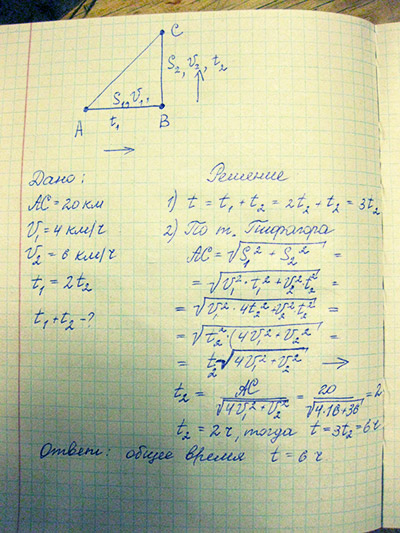 C
S₂, V₂, t₂
S₁, V₁,
A t₁ B
Дано:
AC = 20 км
V₁ = 4 км/ч
V₂ = 6 км/ч
t₁ = 2t₂
t₁ + t₂ - ?
Решение
1) t = t₁ + t₂ = 2t₂ + t₂ = 3t₂
2) По т. Пифагора
AC = √(S₁² + S₂²) =
= √(V₁² · t₁² + V₂² t₂²) =
= √(V₁² · 4t₂² + V₂² t₂²) =
= √(t₂² · (4V₁² + V₂²)) =
= t₂ √(4V₁² + V₂²) →
t₂ = AC / √(4V₁² + V₂²) = 20 / √(4·16+36) = 2
t₂ = 2 ч, тогда t = 3t₂ = 6 ч.
Ответ: общее время t = 6 ч